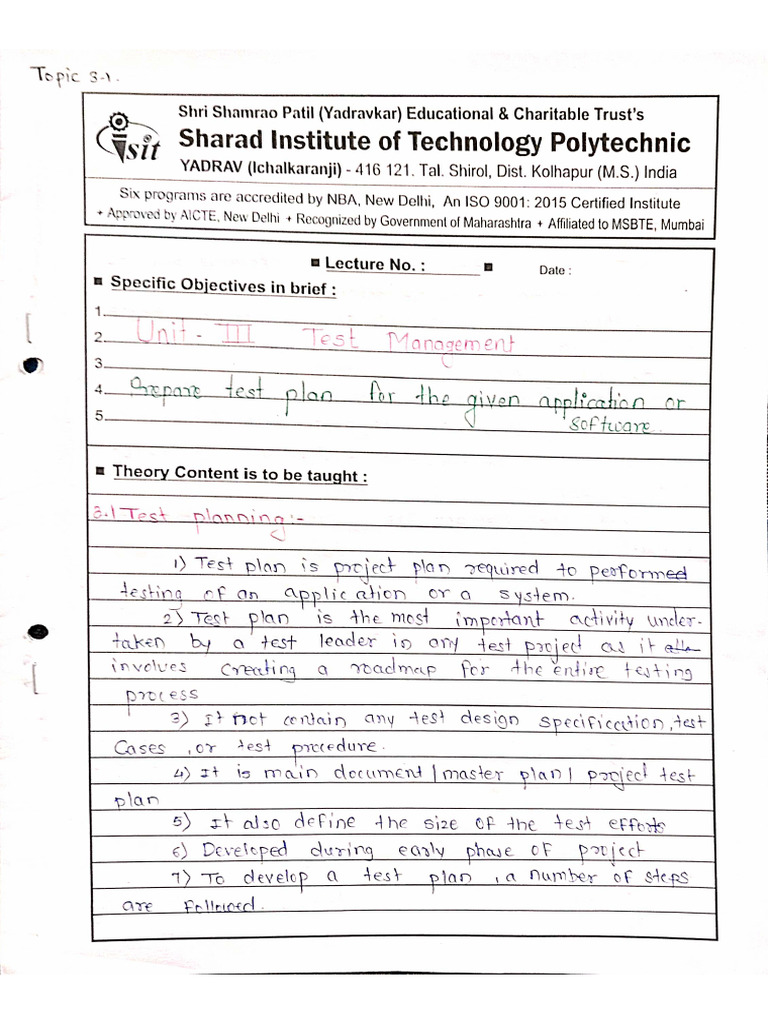 Topic 3.1.
Shri Shamrao Patil (Yadravkar) Educational & Charitable Trust's
sit
Sharad Institute of Technology Polytechnic
YADRAV (Ichalkaranji) - 416 121. Tal. Shirol, Dist. Kolhapur (M.S.) India
Six programs are accredited by NBA, New Delhi, An ISO 9001: 2015 Certified Institute
+ Approved by AICTE, New Delhi + Recognized by Government of Maharashtra + Affiliated to MSBTE, Mumbai
■ Lecture No. : ■ Date :
■ Specific Objectives in brief :
1.
2. Unit - III Test Management
3.
4. Prepare test plan for the given application or
5. software.
■ Theory Content is to be taught :
3.1 Test planning:-
1) Test plan is project plan required to performed
testing of an application or a system.
2) Test plan is the most important activity under-
taken by a test leader in any test project as it
involves creating a roadmap for the entire testing
process
3) It not contain any test design specification, test
Cases, or test procedure.
4) It is main document | master plan | project test
plan
5) It also define the size of the test efforts
6) Developed during early phase of project
7) To develop a test plan, a number of steps
are followed.